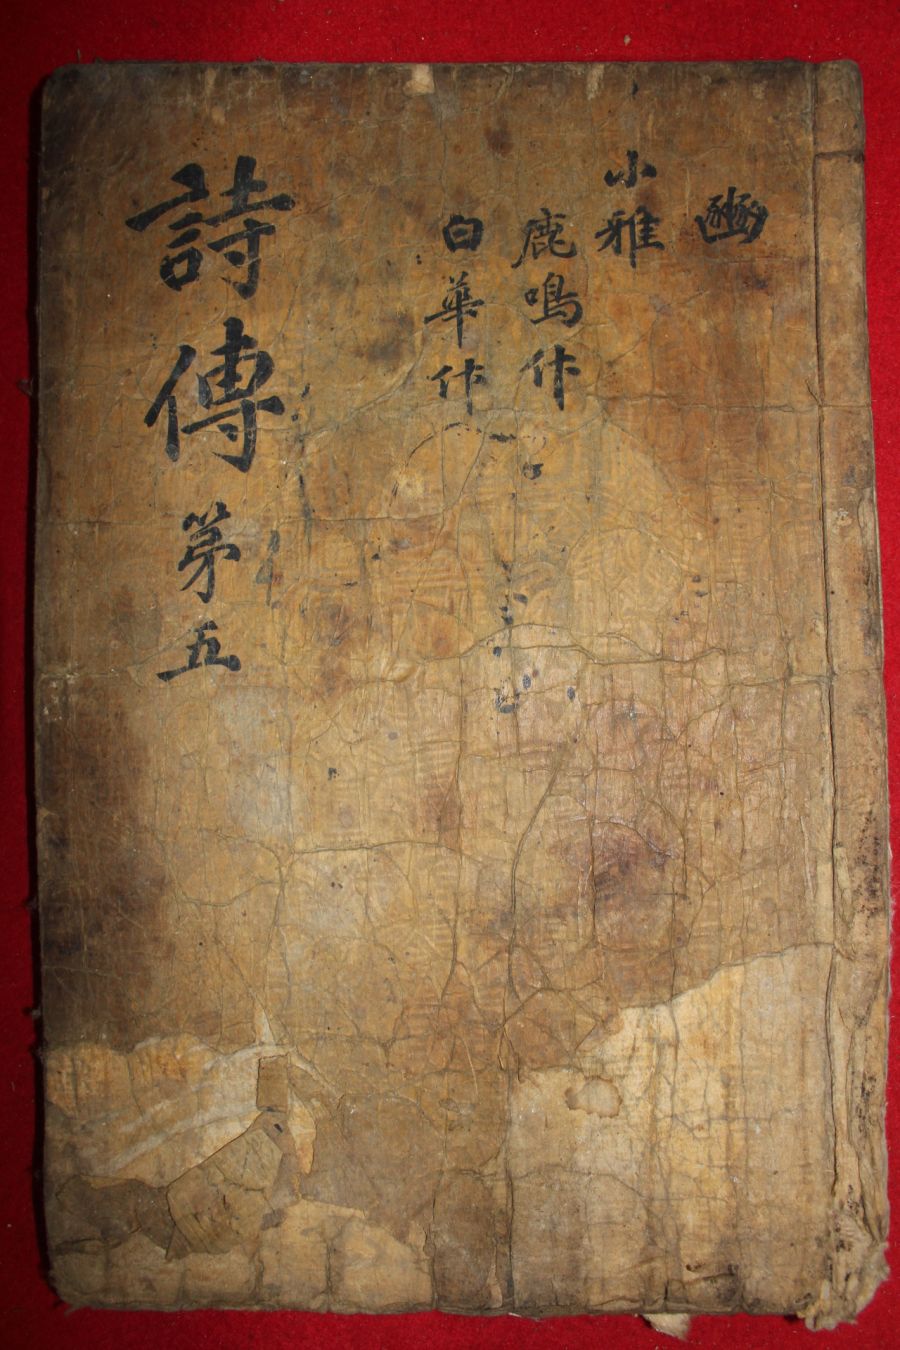 豳
小雅
鹿鳴什
白華什
詩傳 苐五